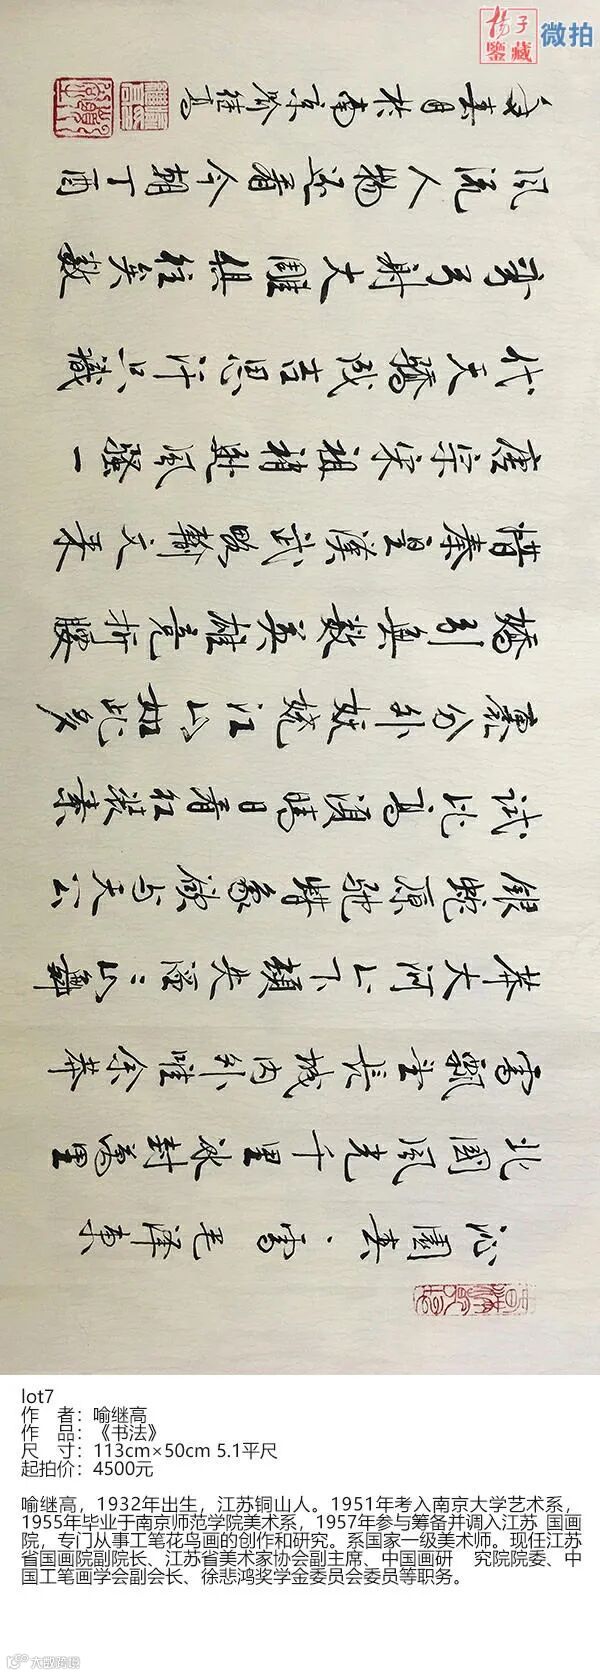 揚子鑒藏 微拍
沁園春·雪 毛澤東
北國風光千里冰封萬里
雪飄望長城内外唯余莽
莽大河上下頓失滔滔山舞
銀蛇原馳蜡象欲与天公
試比高須晴日看红装素
裹分外妖娆江山如此多
嬌引無數英雄競折腰
惜秦皇漢武略輸文采
唐宗宋祖稍遜風騷一
代天驕成吉思汗只識
彎弓射大雕俱往矣數
風流人物还看今朝丁酉
年春月於南京喻继高
lot7
作 者：喻继高
作 品：《书法》
尺 寸：113cm×50cm 5.1平尺
起拍价：4500元
喻继高，1932年出生，江苏铜山人。1951年考入南京大学艺术系，
1955年毕业于南京师范学院美术系，1957年参与筹备并调入江苏 国画
院，专门从事工笔花鸟画的创作和研究。系国家一级美术师。现任江苏
省国画院副院长、江苏省美术家协会副主席、中国画研 究院院委、中
国工笔画学会副会长、徐悲鸿奖学金委员会委员等职务。
大数跨境